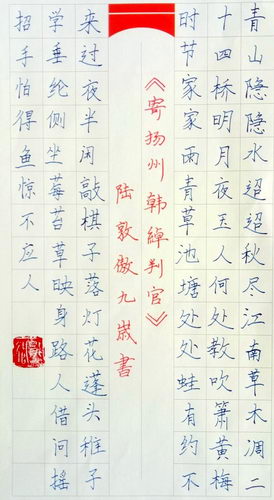 青山隐隐水迢迢秋尽江南草木凋二
十四桥明月夜玉人何处教吹箫黄梅
时节家家雨青草池塘处处蛙有约不
《寄扬州韩绰判官》
陆敦傲九歲書
来过夜半闲敲棋子落灯花蓬头稚子
学垂纶侧坐莓苔草映身路人借问摇
招手怕得鱼惊不应人